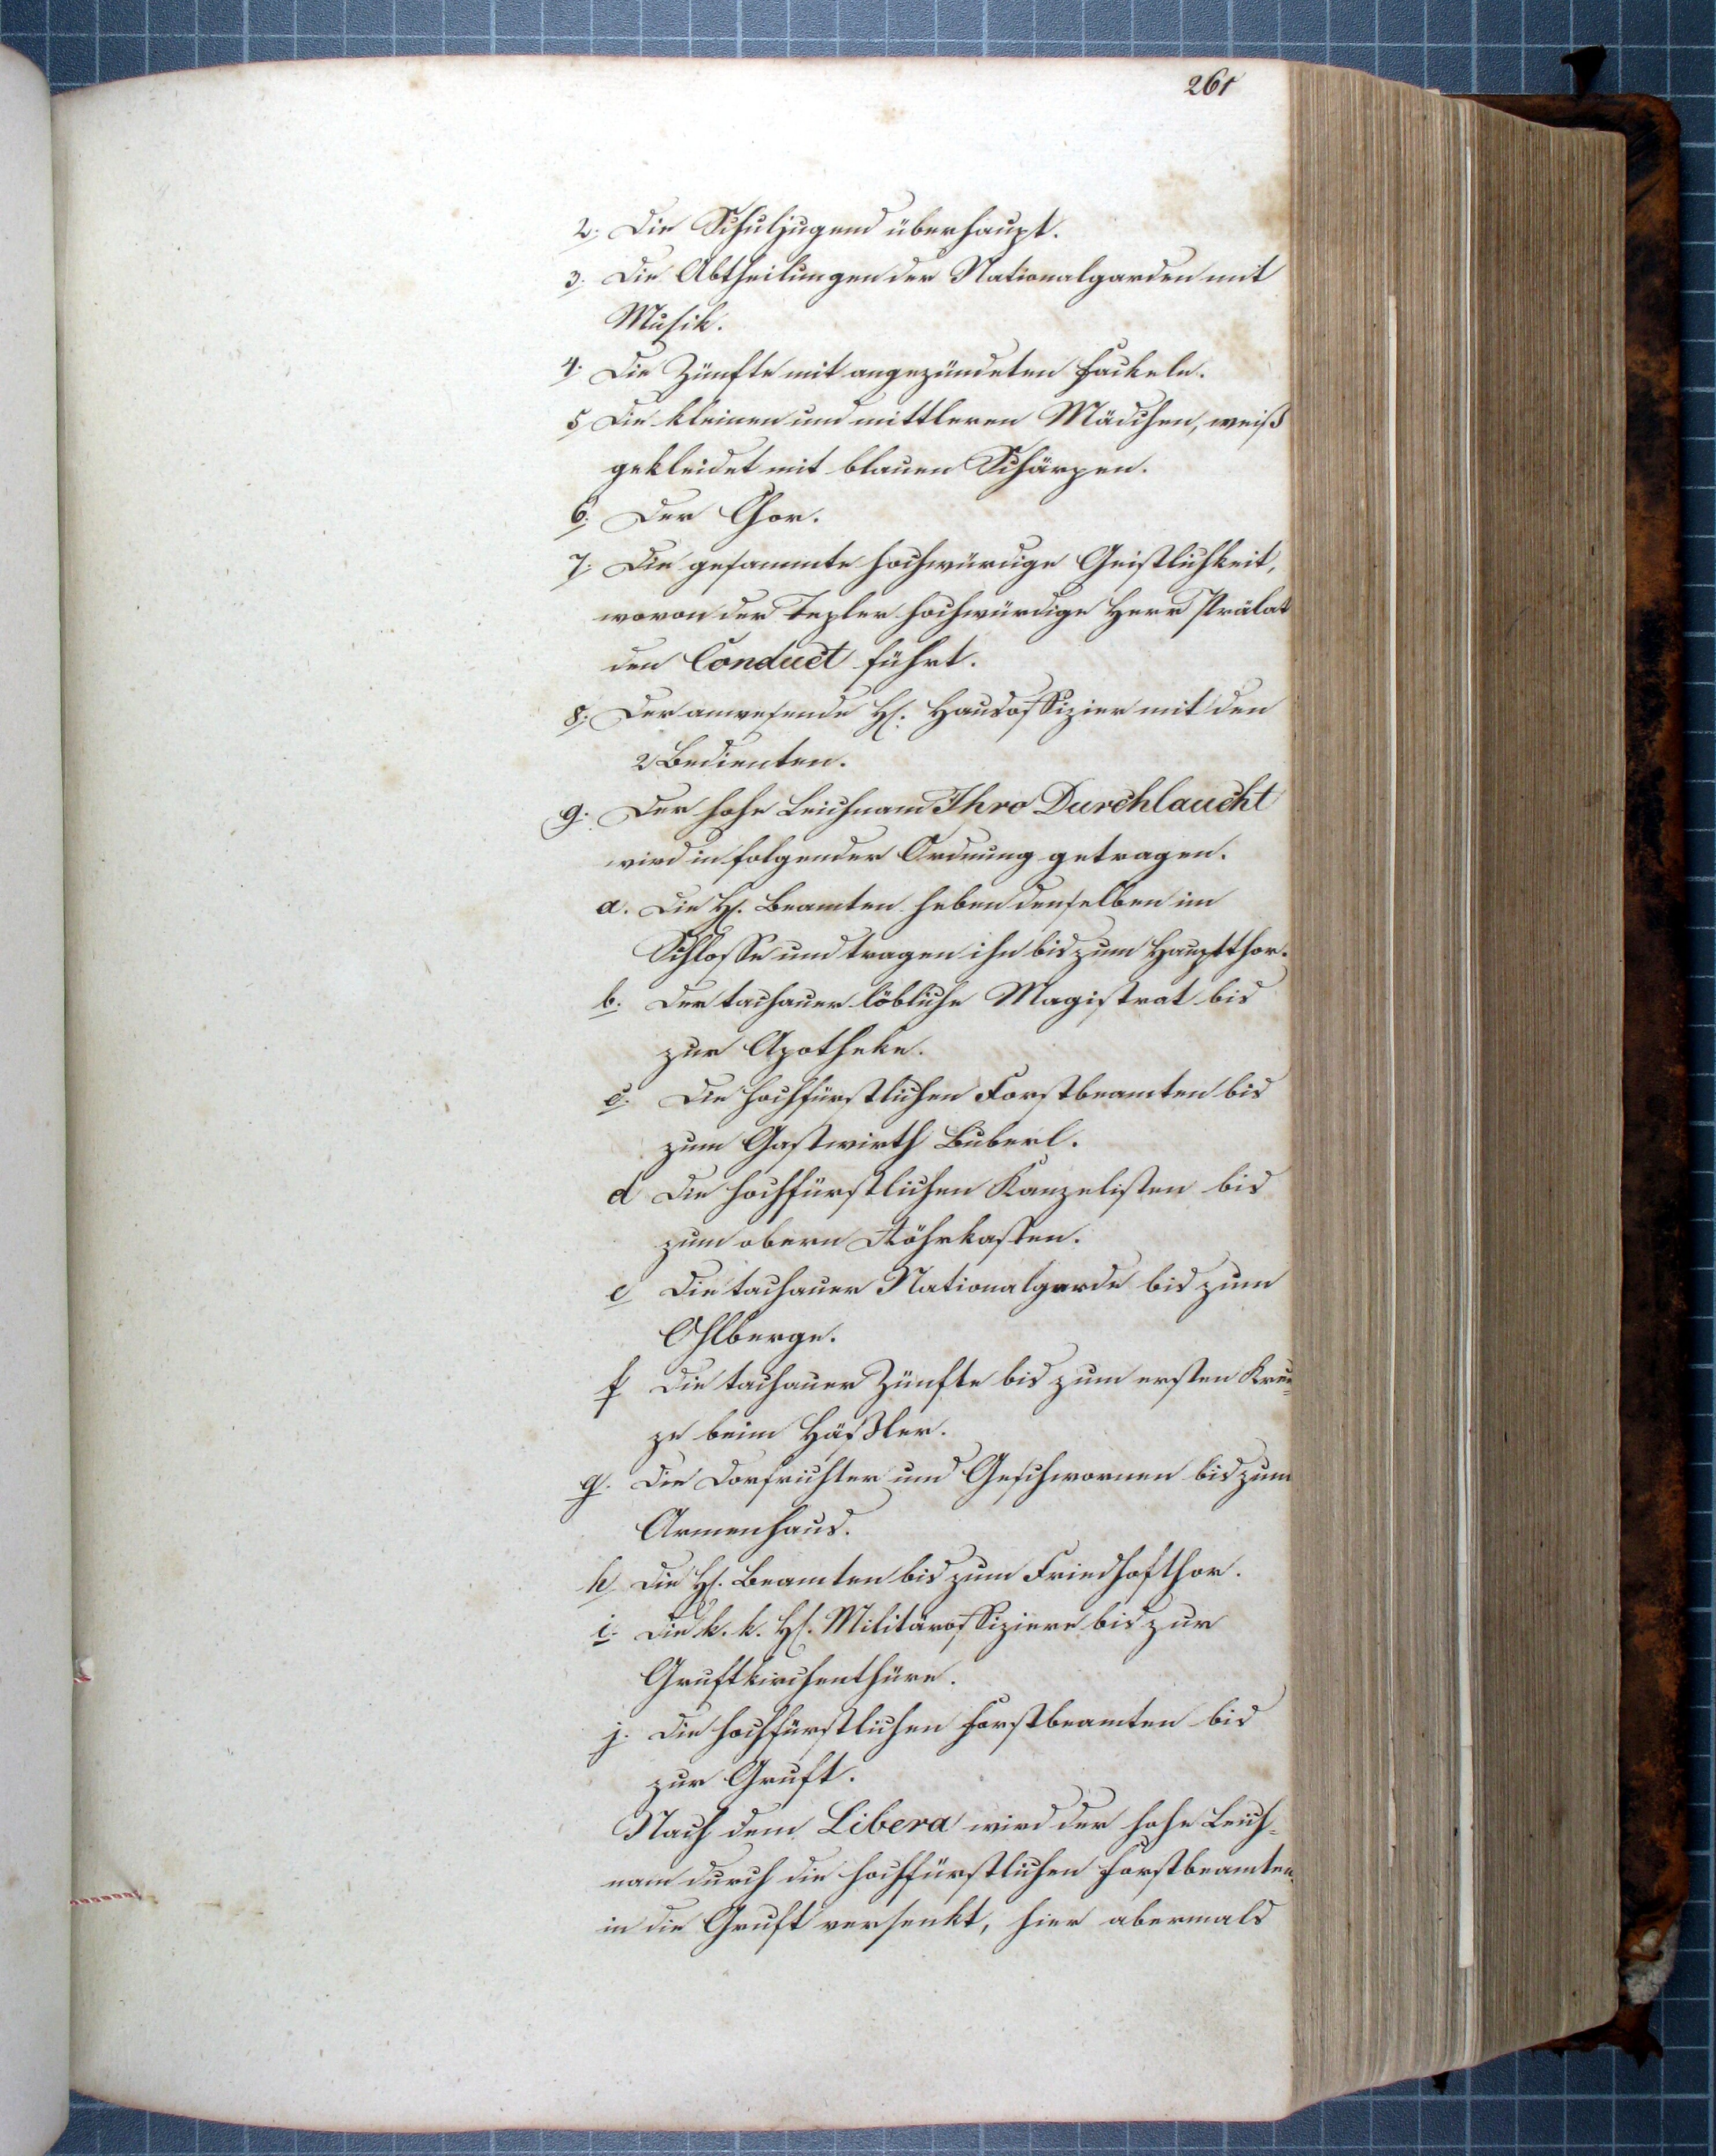 261
2. Die Schuljugend überhaupt.
3. Die Abtheilungen der Nationalgarden mit
Musik.
4. Die Zünfte mit angezündeten Fackeln.
5 Die kleinen und mittleren Mädchen, weiß
gekleidet mit blauen Schärpen.
6. Der Chor.
7. Die gesammte hochwürdige Geistlichkeit,
wovon der Tepler hochwürdige Herr Prälat
den Conduct führt.
8. Der anwesende H. Hausoffizier mit den
2 Bedienten.
9. Der hohe Leichnam Ihro Durchlaucht
wird in folgender Ordnung getragen.
a. Die H. Beamten heben denselben im
Schlosse und tragen ihn bis zum Hauptthor.
b. Der tachauer löbliche Magistrat bis
zur Apotheke.
c. Die hochfürstlichen Forstbeamten bis
zum Gastwirth Buberl.
d Die hochfürstlichen Kanzelisten bis
zum obern Röhrkasten.
e Die tachauer Nationalgarde bis zum
Ohlberge.
f Die tachauer Zünfte bis zum ersten Kreu=
ze beim Häßler.
g. Die Dorfrichter und Geschwornen bis zum
Armenhaus.
h Die H. Beamten bis zum Friedhofthor.
i. Die k. k. H. Militäroffiziere bis zur
Gruftkirchenthüre.
j. Die hochfürstlichen Forstbeamten bis
zur Gruft.
Nach dem Libera wird der hohe Leich=
nam durch die hochfürstlichen Forstbeamten
in die Gruft versenkt, hier abermals